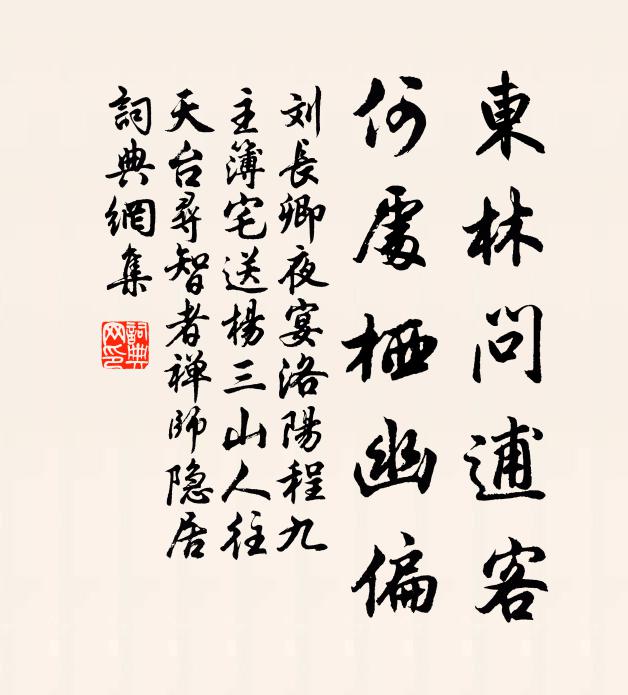 東林問逋客
何處栖幽偏
刘長卿夜宴洛陽程九
主簿宅送楊三山人往
天台尋智者禅師隐居
詞典網集
詞典网印